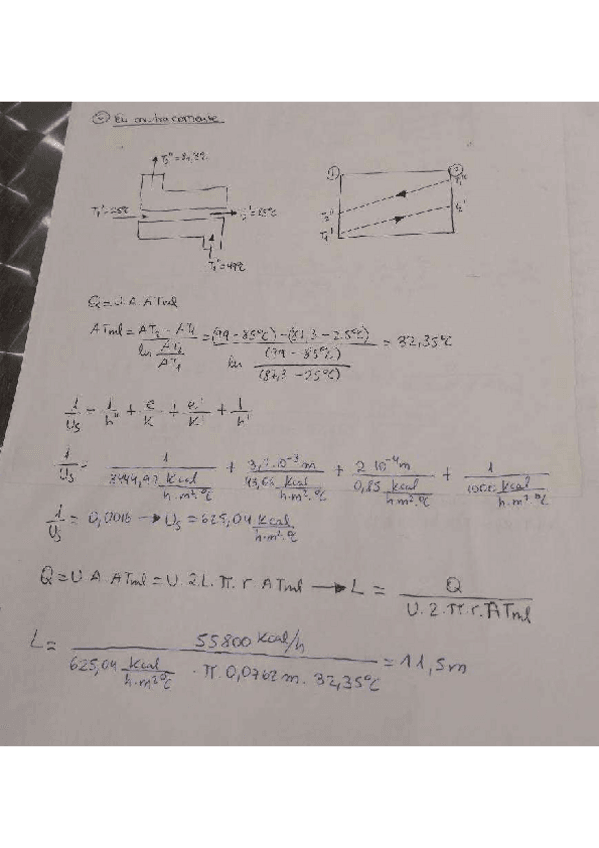 ② En contracorriente
T₂" = 81,3ºC
① ②
T₁"
T₁' = 25ºC T₂' = 85ºC T₂" T₂'
T₁'
T₁" = 99ºC
Q = U.A.ΔTml
ΔTml = (ΔT₂ - ΔT₁) / (ln (ΔT₂ / ΔT₁)) = ((99 - 85ºC) - (81,3 - 25ºC)) / (ln ((99 - 85ºC) / (81,3 - 25ºC))) = 32,35ºC
1/Us = 1/h" + e/K + e'/K' + 1/h'
1/Us = 1 / (Kcal / h.m².ºC) + (10⁻³ m) / (Kcal / h.m².ºC) + (2 10⁻⁴ m) / (0,85 Kcal / h.m².ºC) + 1 / (Kcal / h.m².ºC)
1/Us = 0,0016 → Us = 625,04 Kcal / h.m².ºC
Q = U.A.ΔTml = U.2L.π.r.ΔTml → L = Q / (U.2.π.r.ΔTml)
L = (55800 Kcal/h) / (625,04 Kcal / h.m²ºC . π.0,0762m . 32,35ºC) = 11,5m